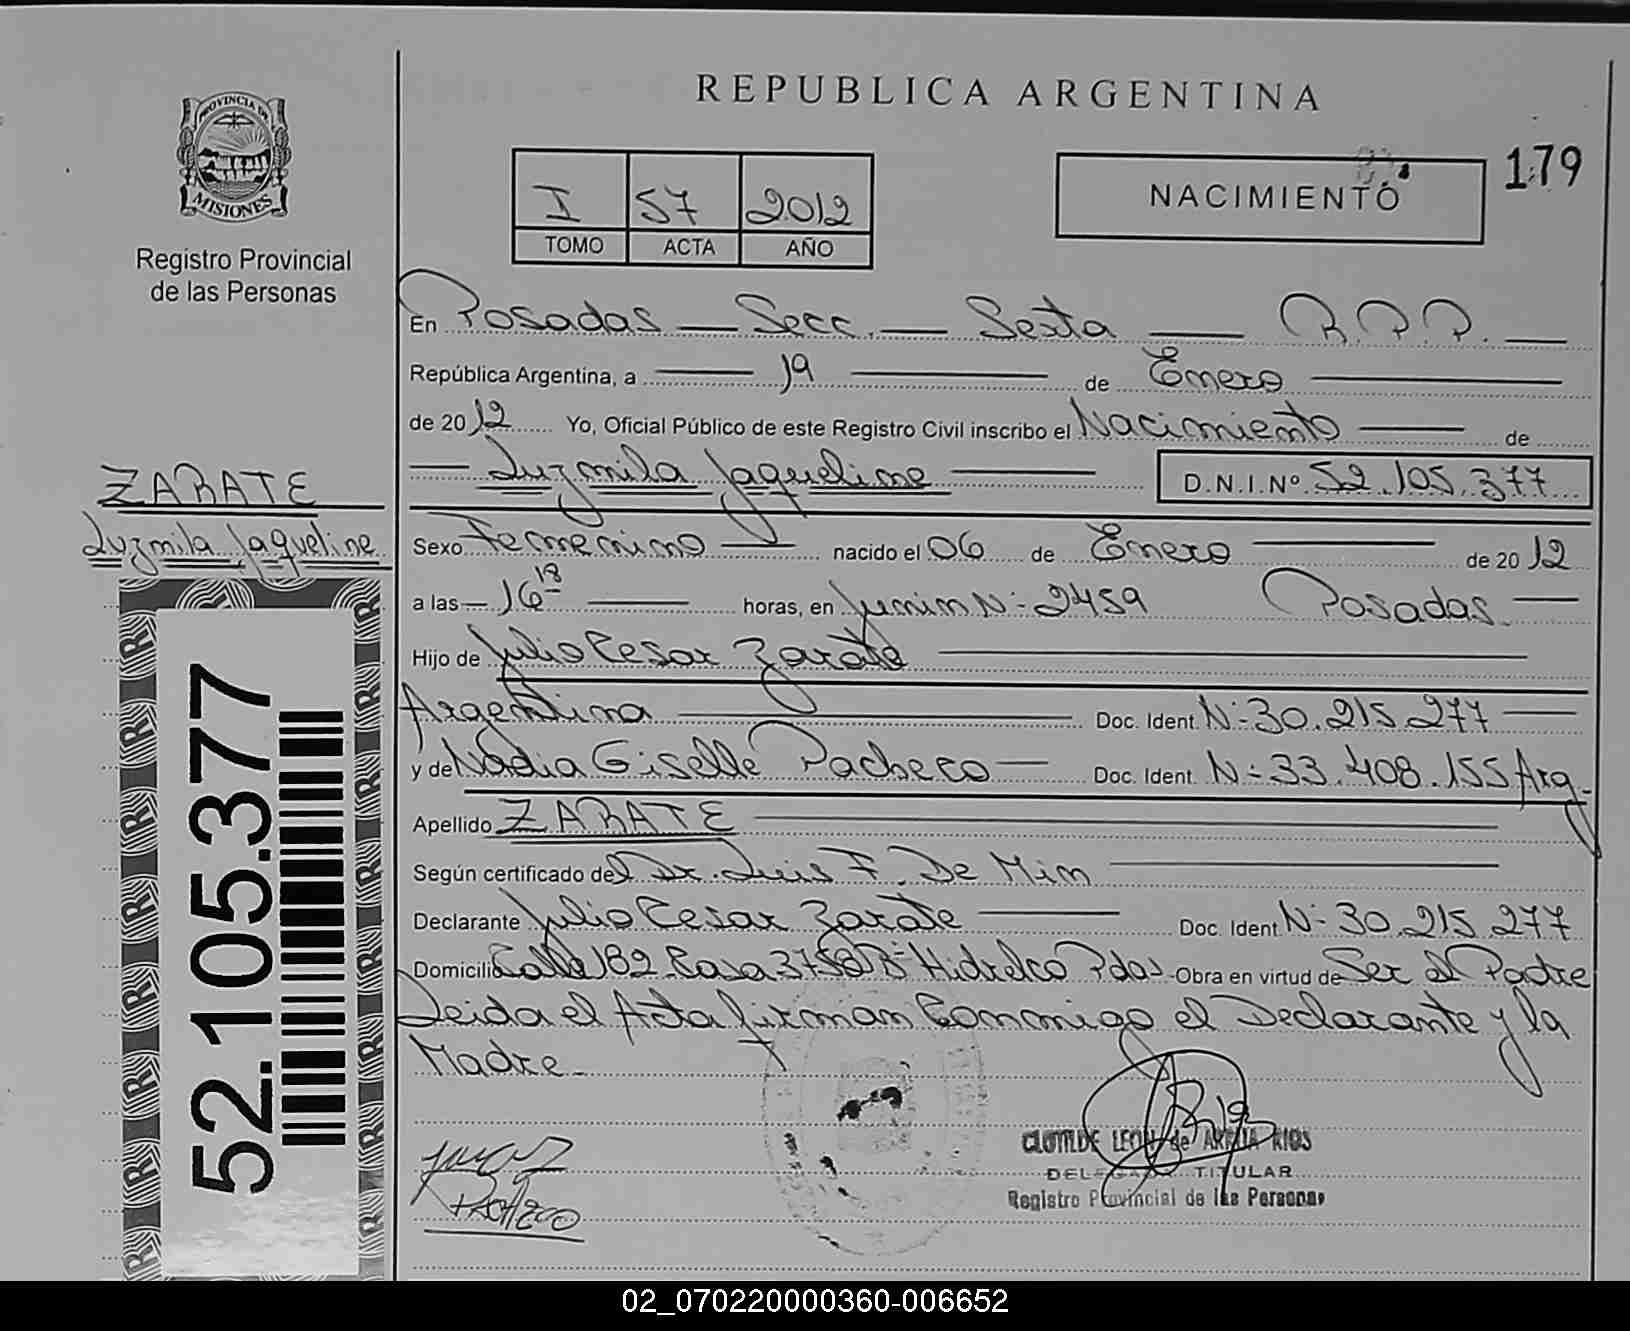 REPUBLICA ARGENTINA
PROVINCIA DE
MISIONES
Registro Provincial
de las Personas
I 57 2012
TOMO ACTA AÑO
NACIMIENTO
179
En Posadas — Secc. — Sexta — R.P.P. —
República Argentina, a — 19 — de Enero —
de 2012 Yo, Oficial Público de este Registro Civil inscribo el Nacimiento — de
— Luzmila Jaqueline — D.N.I. Nº 52.105.377
ZARATE
Luzmila Jaqueline
Sexo Femenino — nacido el 06 de Enero — de 2012
a las — 16 18 — horas, en Junin Nº 2459 Posadas —
Hijo de Julio Cesar Zarate —
Argentina — Doc. Ident. Nº 30.215.277 —
y de Nadia Giselle Pacheco — Doc. Ident. Nº 33.408.155 Arg.
Apellido ZARATE —
Según certificado del Dr. Luis F. De Min —
Declarante Julio Cesar Zarate — Doc. Ident. Nº 30.215.277
Domicilio Calle 182 Casa 3758 Bº Hidrelco Pdas. Obra en virtud de Ser el Padre
Leida el Acta firman Conmigo el Declarante y la
Madre.
52.105.377
PACHECO
CLOTILDE LEON de ARAUJA RIOS
DELEGADA TITULAR
Registro Provincial de las Personas
02_070220000360-006652